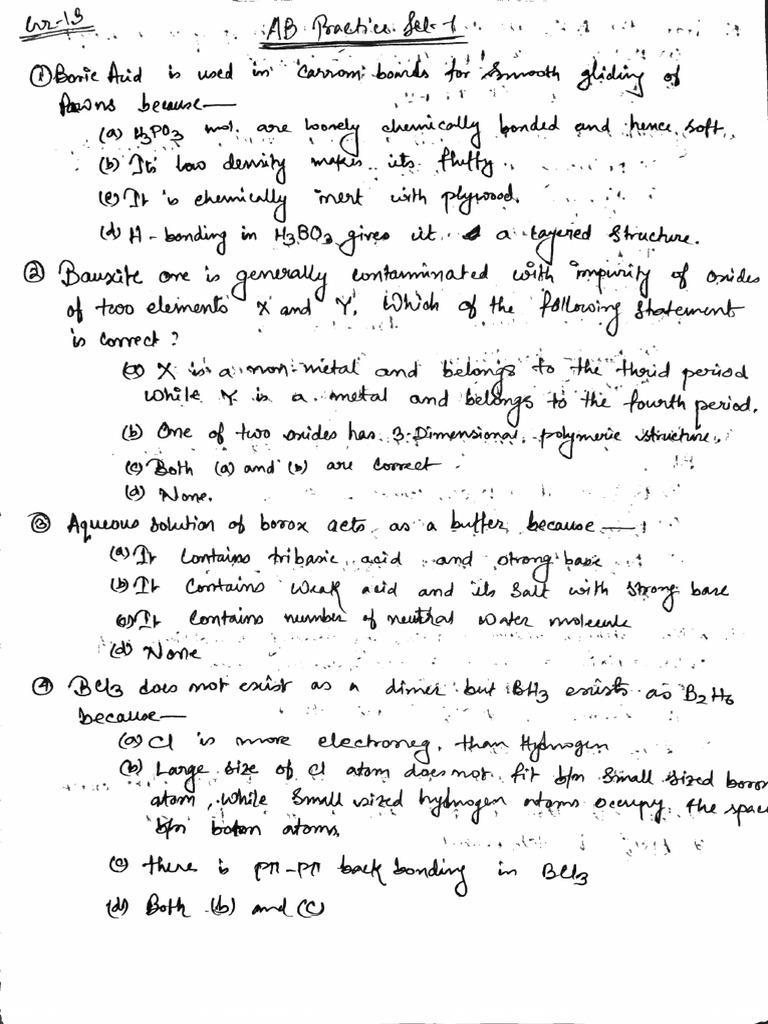 Gr-13
AB Practice Set-1
① Boric Acid is used in carrom boards for smooth gliding of
Pawns because—
(a) H3PO3 mol. are loosely chemically bonded and hence soft.
(b) Its low density makes its fluffy.
(c) It is chemically inert with plywood.
(d) H-bonding in H3BO3 gives it a layered structure.
② Bauxite ore is generally contaminated with impurity of oxides
of two elements X and Y. Which of the following statement
is correct?
(a) X is a non-metal and belongs to the thrid period
while Y is a metal and belongs to the fourth period.
(b) One of two oxides has 3-Dimensional polymeric structure.
(c) Both (a) and (b) are correct.
(d) None.
③ Aqueous solution of borox acts as a buffer because—
(a) It contains tribasic acid and strong base
(b) It contains weak acid and its salt with strong base
(c) It contains number of neutral water molecule
(d) None
④ BCl3 does not exist as a dimer but BH3 exists as B2H6
because—
(a) Cl is more electroneg. than Hydrogen
(b) Large size of Cl atom does not fit b/n small sized boron
atom, while small sized hydrogen atoms occupy the space
b/n boron atoms.
(c) there is pπ-pπ back bonding in BCl3
(d) Both (b) and (c)